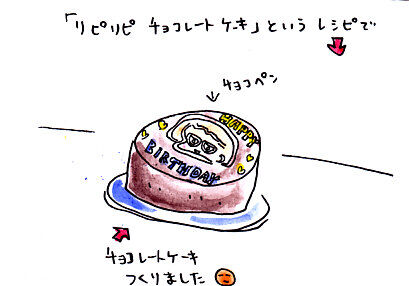 「リピリピ チョコレートケーキ」という レシピで
チョコペン
HAPPY
BIRTHDAY
チョコレートケーキ
つくりました